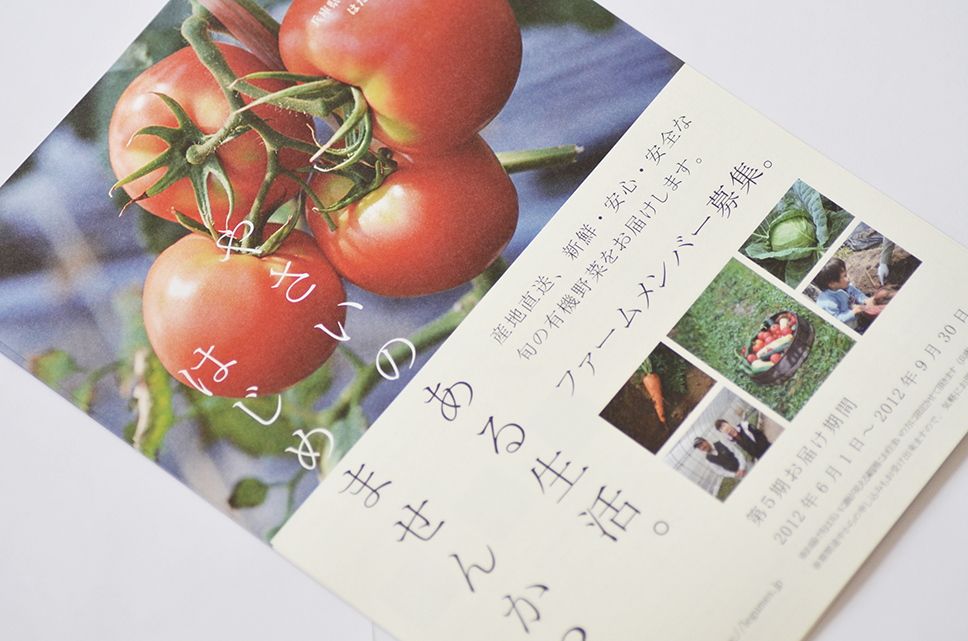 兵庫県
やさいのある生活。
はじめませんか
産地直送、新鮮・安心・安全な
旬の有機野菜をお届けします。
ファームメンバー募集。
第5期お届け期間
2012年6月1日～2012年9月30日